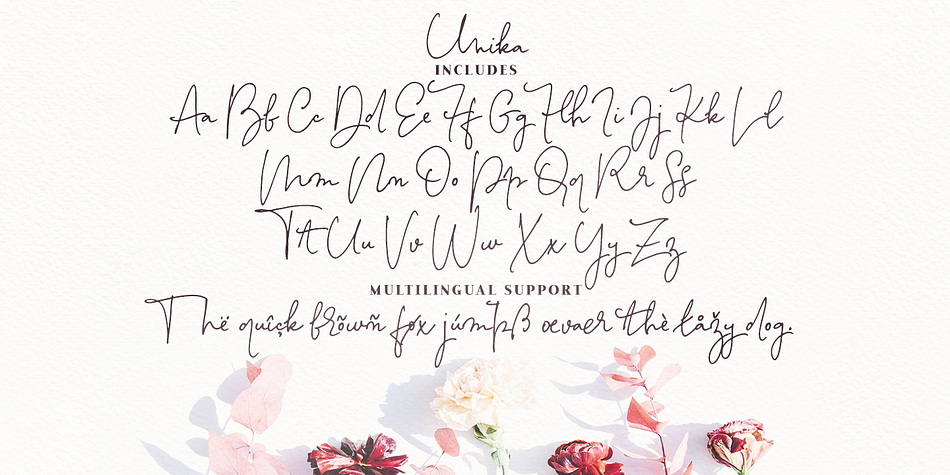 Unika
INCLUDES
Aa Bb Cc Dd Ee Ff Gg Hh Ii Jj Kk Ll
Mm Nn Oo Pp Qq Rr Ss
Tt Uu Vv Ww Xx Yy Zz
MULTILINGUAL SUPPORT
Thë quîçk brõwñ føx júmpß œvaer thè łåžy dog.